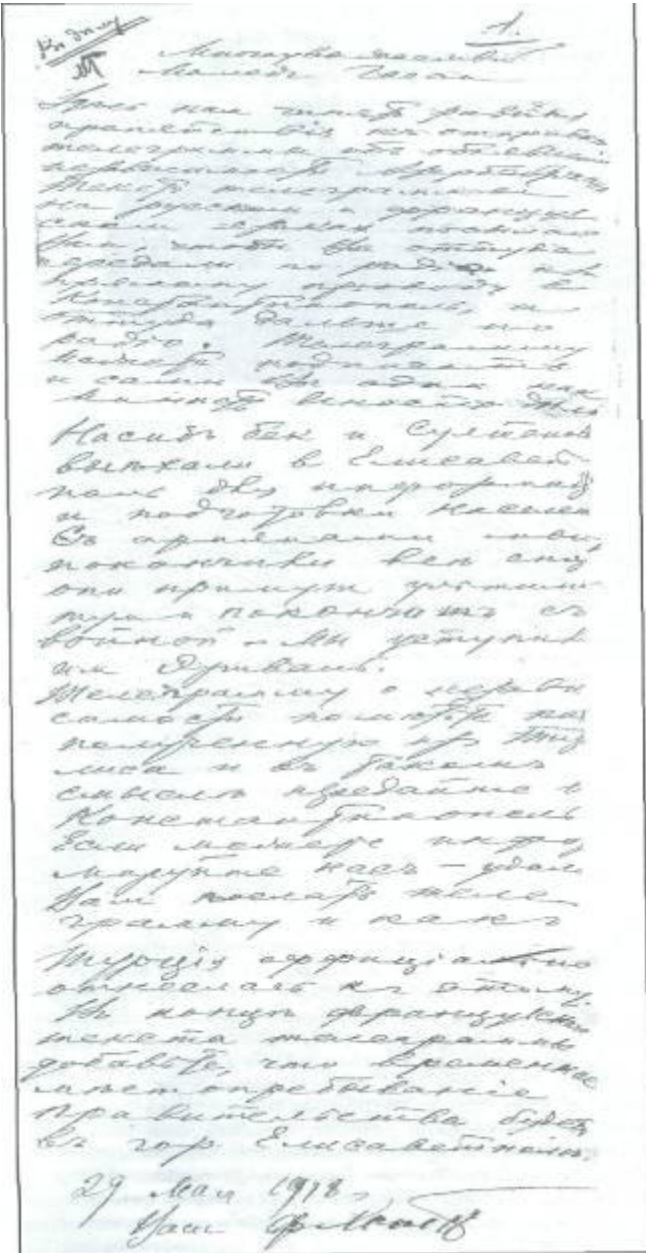 Къ дѣлу
1.
Многоуважаемый
Мамедъ Гасан
нам теперь
препятствія къ отправкѣ
телеграммы объ объявленіи
независимости Азербайджана
Текст телеграммы
на русском и француз
ском языках посылаю
Вам, чтобы Вы оттуда
передали по радіо или
прямому проводу в
Константинополь, и
оттуда дальше по
радіо. Телеграмму
может подписать
и самим
Насибъ бек и Султанов
выѣхали в Елисавет
поль для информаціи
и подготовки населен
Съ армянами мы
покончили
они примут ультима
тум и покончитъ съ
войной. Мы уступили
им Эривань.
Телеграмму о незави
симости пошлите как
полученную из Тиф
лиса и въ таком
смыслѣ передайте в
Константинополь
Если можете инфор
мируйте насъ — удалось
Вам послать теле
грамму и какъ
Турція оффиціально
отнеслась къ этому.
Въ концѣ французскаго
текста телеграммы
добавьте, что временное
мѣстопребываніе
правительства будетъ
въ гор. Елисаветполь.
29 Мая 1918 г.
Ваш